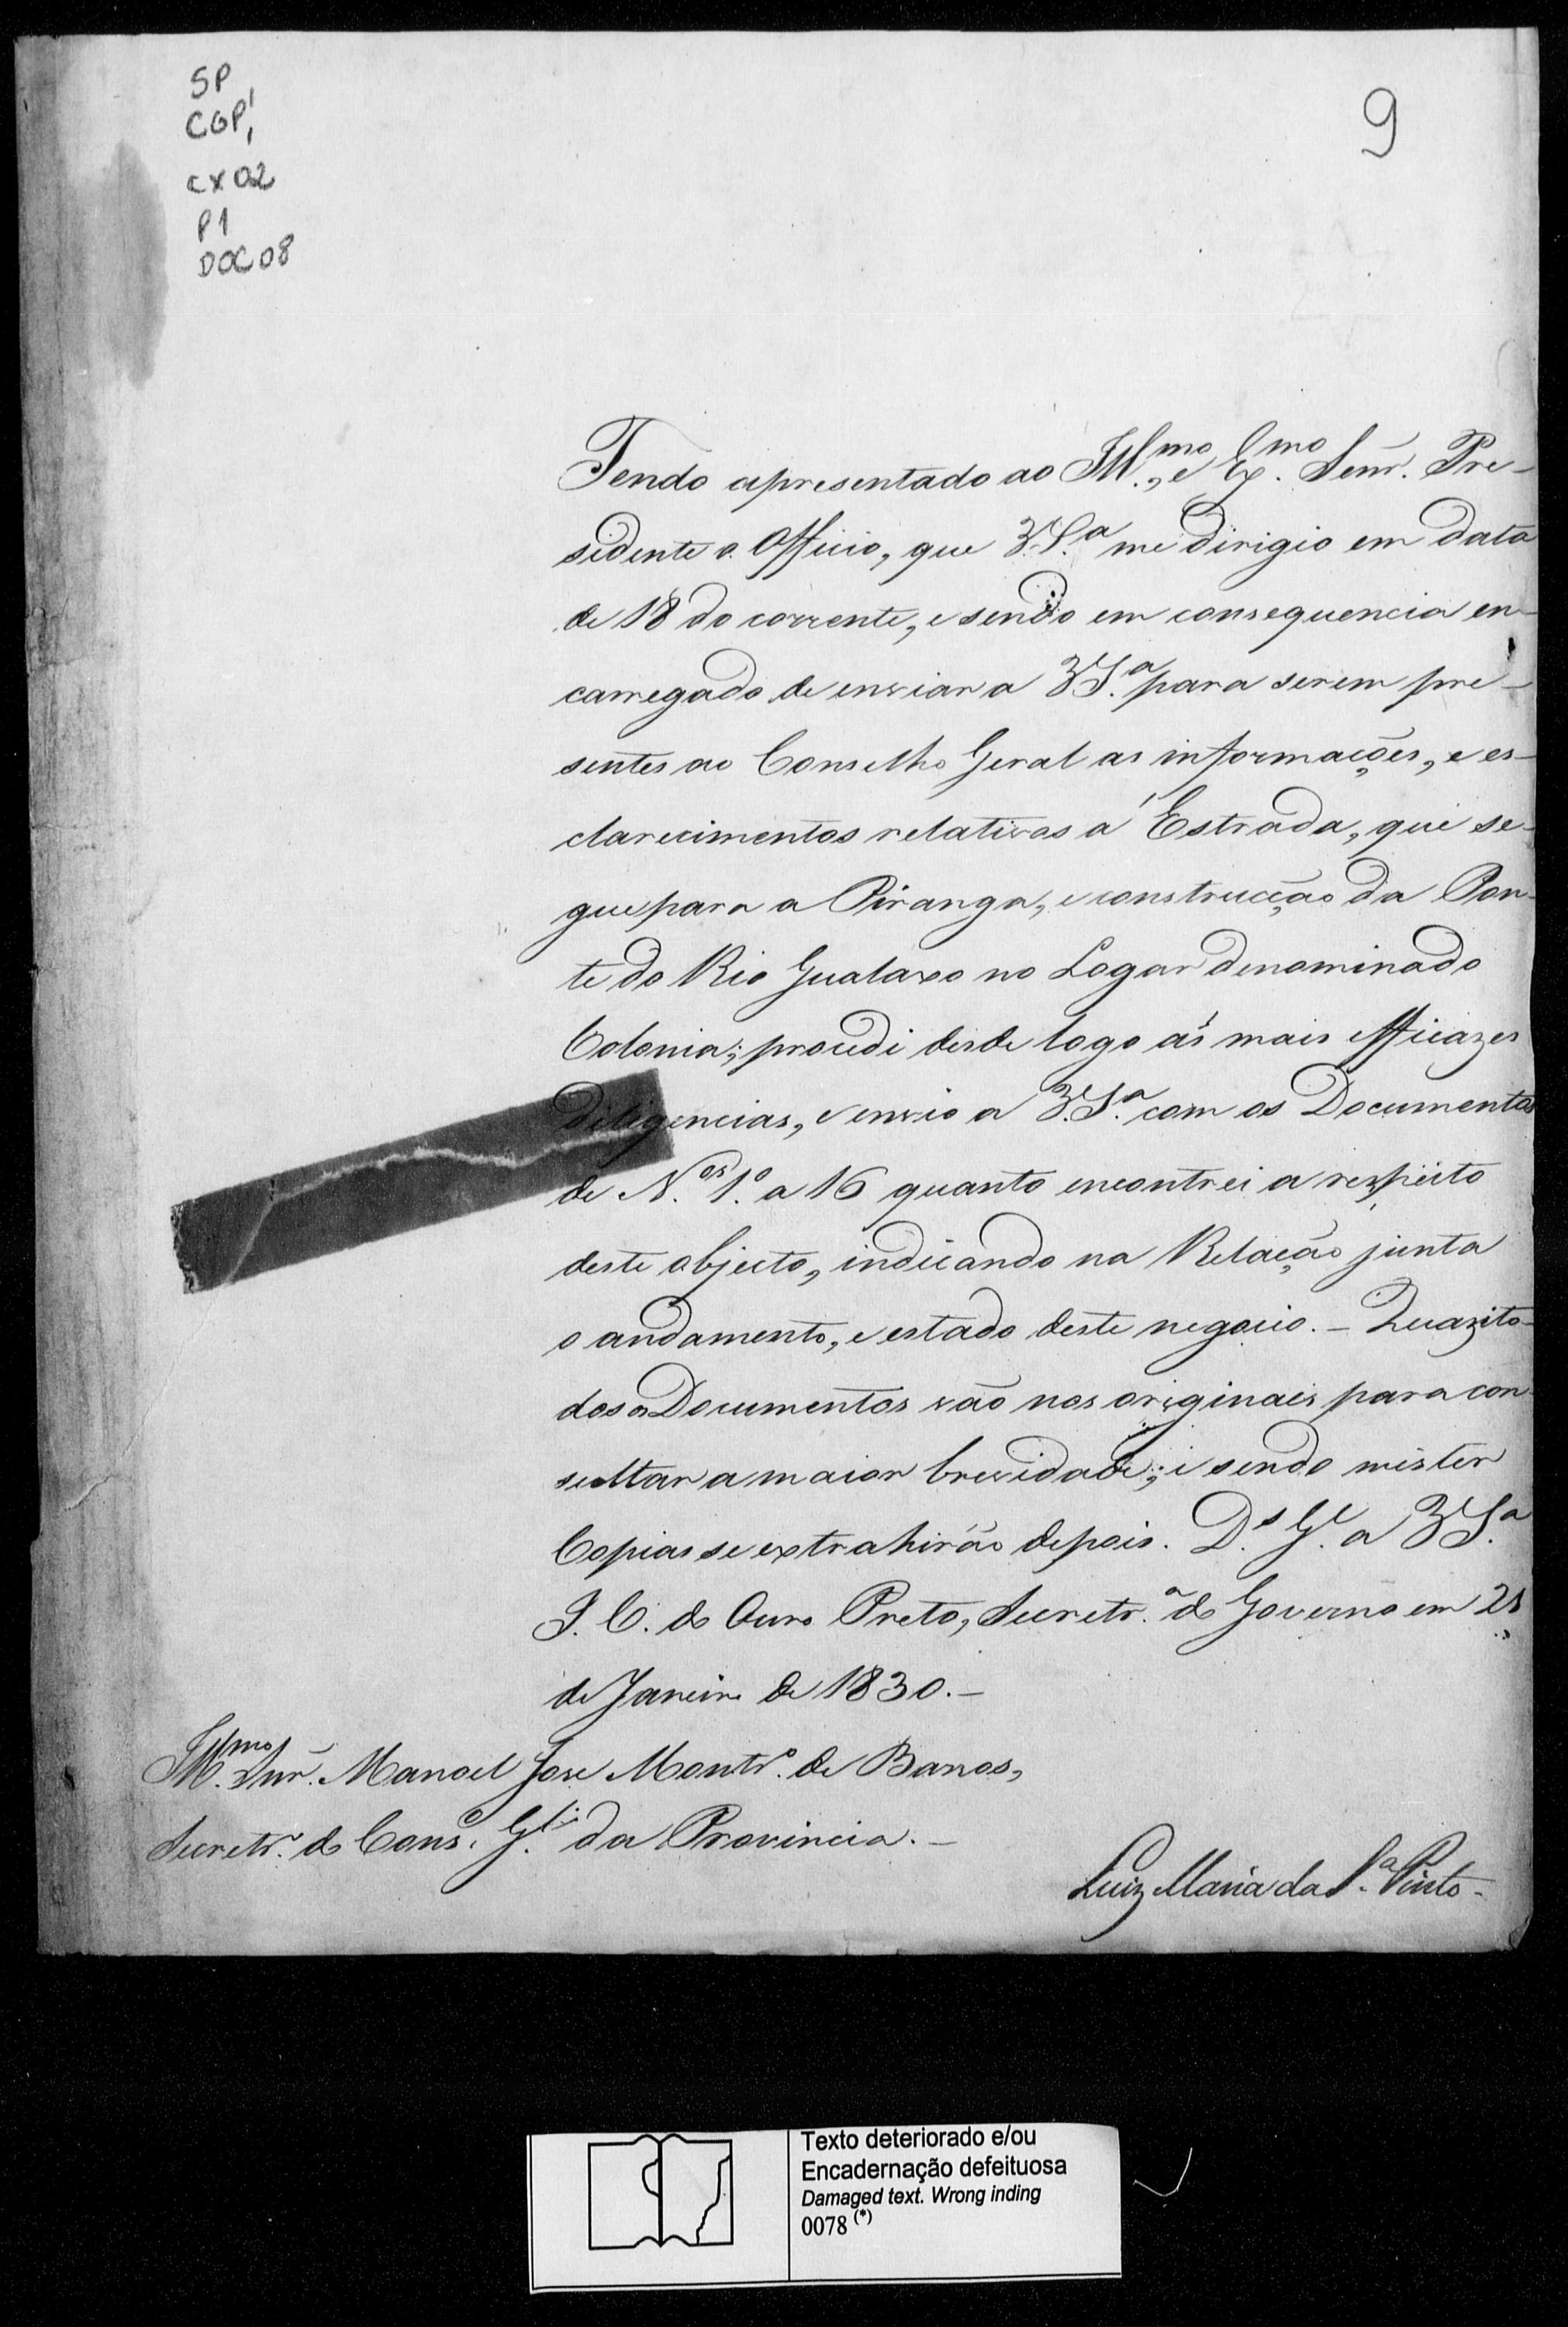 SP
CGP1
cx02
P1
DOC08
9
Tendo apresentado ao Illmo., e Exmo. Senr. Pre-
sidente o Officio, que V.S.a me dirigio em data
de 18 do corrente, e sendo em consequencia en-
carregado de enviar a V.S.a para serem pre-
sentes ao Conselho Geral as informações, e es-
clarecimentos relativos a' Estrada, que se-
gue para a Piranga, e construcção da Pon-
te do Rio Gualaxo no Logar denominado
Colonia; procedi desde logo ás mais efficazes
diligencias, e envio a V.S.a com os Documentos
de N.os 1.o a 16 quanto encontrei a respeito
deste objecto, indicando na Relação junta
o andamento, e estado deste negocio. - Quazi to-
dos os Documentos vão nos originaes para con-
sultar a maior brevidade; e sendo mister
Copias se extrahirão depois. D.s G.e a V.S.a
I. C. do Ouro Preto, Secretr.a do Governo em
de Janeiro de 1830. -
Illmo. Snr. Manoel Jose Montr.o de Barros,
Secretr.o do Cons.o G.l da Provincia. -
Luiz Maria da S.a Pinto -
Texto deteriorado e/ou
Encadernação defeituosa
Damaged text. Wrong inding
0078 (*)